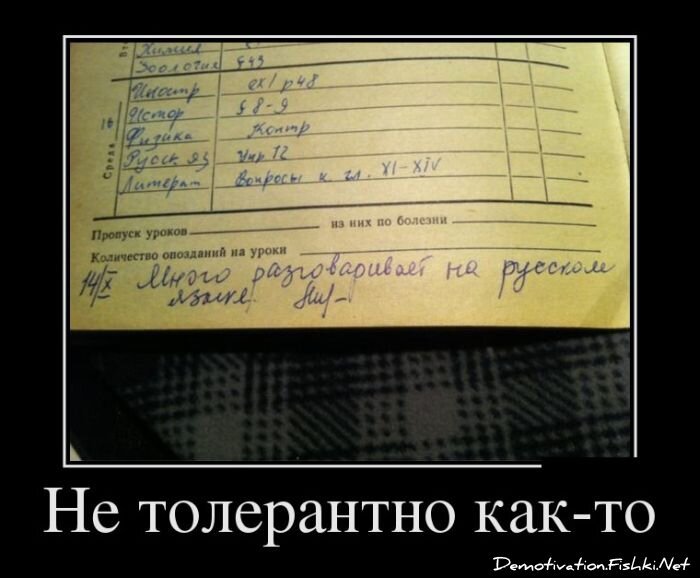 Вт
Химия
Зоология §43
Иностр ex1 p48
Истор § 8-9
Среда 16
Физика Контр
Русск яз Упр 12
Литерат Вопросы к гл. XI-XIV
Пропуск уроков из них по болезни
Количество опозданий на уроки
14/X Много разговаривает на русском
языке.
Не толерантно как-то
Demotivation.Fishki.Net